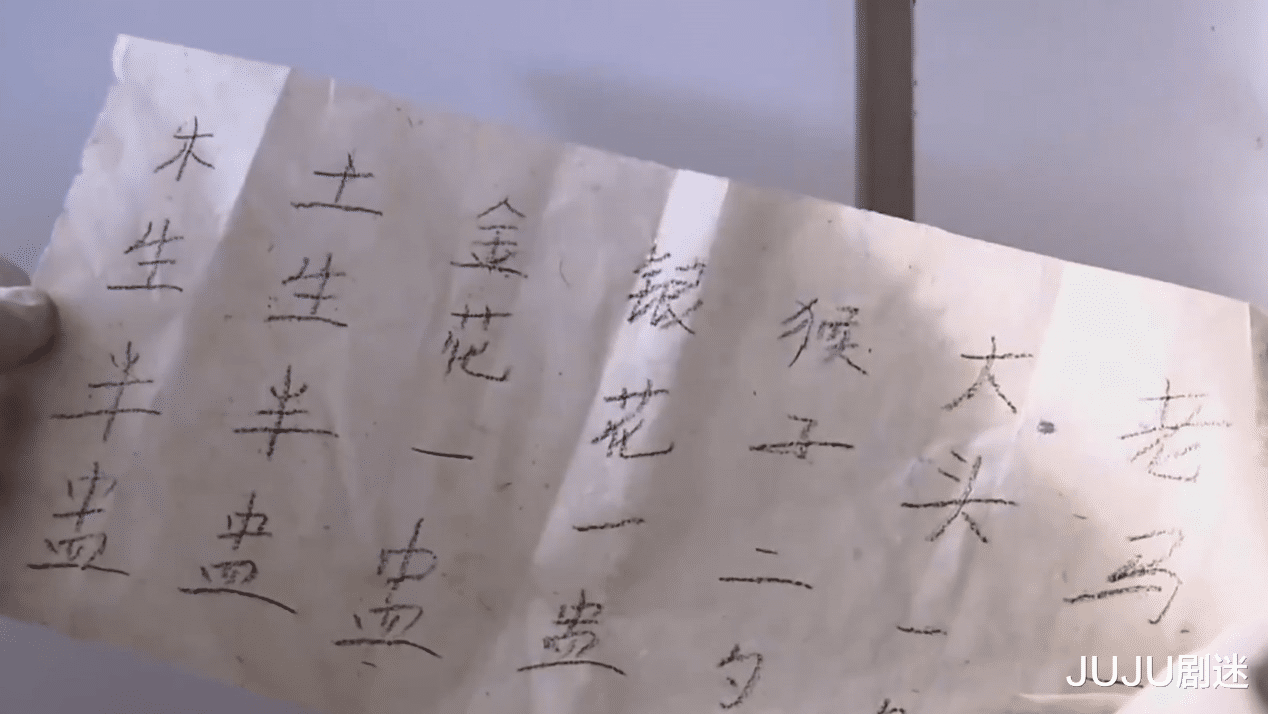 木生半盅
土生半盅
金花一盅
银花一盅
猴子二勺
大头一
老马
JUJU剧迷